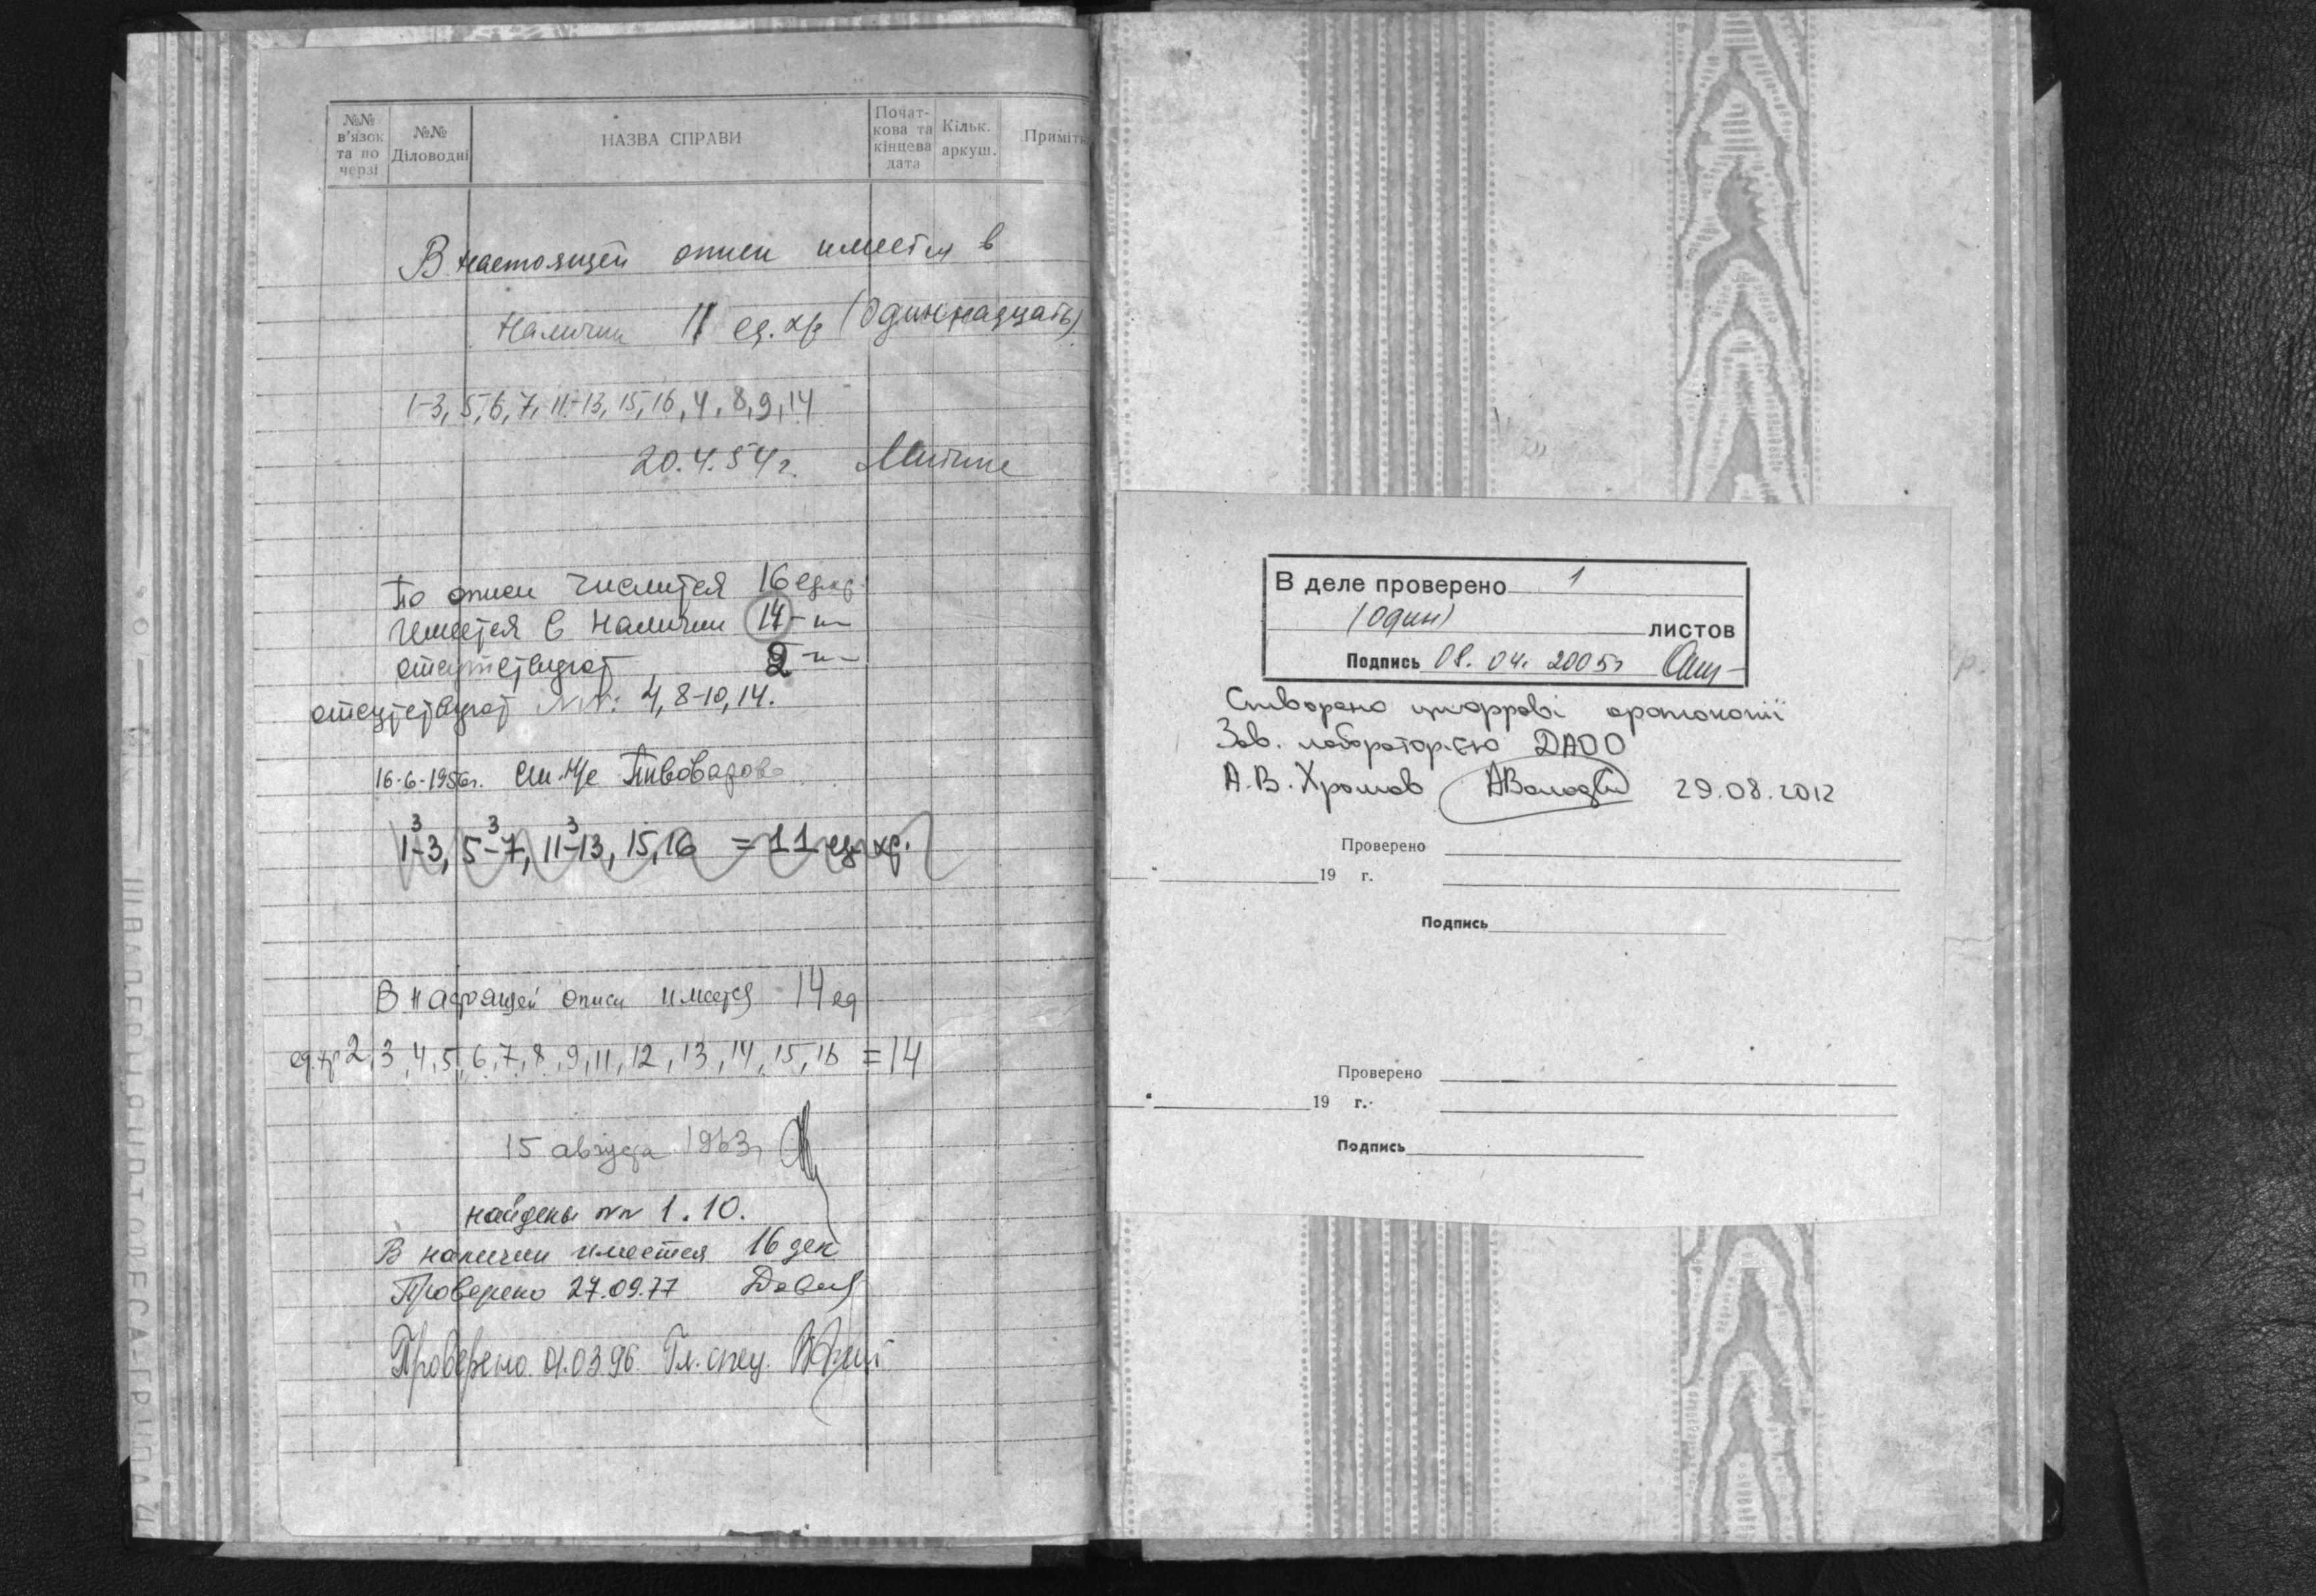 №№ в'язок та по черзі
№№ Діловодні
НАЗВА СПРАВИ
Почат-кова та кінцева дата
Кільк. аркуш.
Приміт
В настоящей описи имеется в
наличии 11 ед. хр (одиннадцать)
1-3, 5, 6, 7, 11-13, 15, 16, 4, 8, 9, 14
20.4.54 г.
По описи числится 16 ед.хр.
Имеется в наличии 14 -"-
отсутствуют 2 -"-
отсутствуют №№: 4, 8-10, 14.
16-6-1956г. Пивоварова
3 3 3
1-3, 5-7, 11-13, 15, 16 = 11 ед.хр.
В настоящей описи имеется 14 ед
ед.хр 2, 3, 4, 5, 6, 7, 8, 9, 11, 12, 13, 14, 15, 16 = 14
15 августа 1963г
найдены №№ 1. 10.
В наличии имеется 16 дел
Проверено 27.09.77
Проверено 01.03.96. Гл. спец.
В деле проверено 1
(один) листов
Подпись 08.04.2005г
Створено цифрові фотокопії
Зав. лабораторією ДАОО
А.В. Хромов 29.08.2012
Проверено
19 г.
Подпись
Проверено
19 г.
Подпись